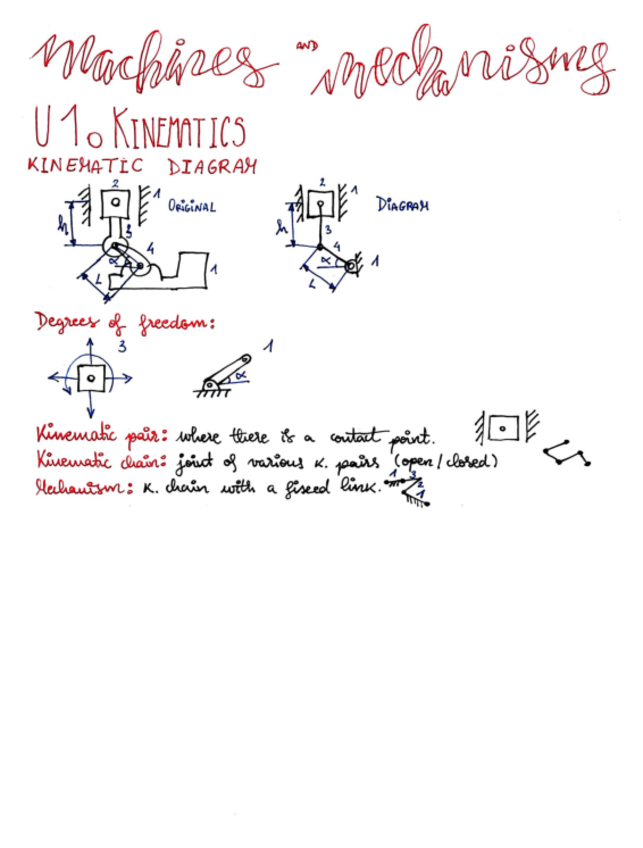 Machines AND mechanisms
U1. KINEMATICS
KINEMATIC DIAGRAM
2 1 ORIGINAL
h 3 4
α L 1
2 1 DIAGRAM
h 3 4
α L 1
Degrees of freedom:
3 1
α
Kinematic pair: where there is a contact point.
Kinematic chain: joint of various K. pairs (open/closed)
Mechanism: K. chain with a fixed link. 1 3 2 1